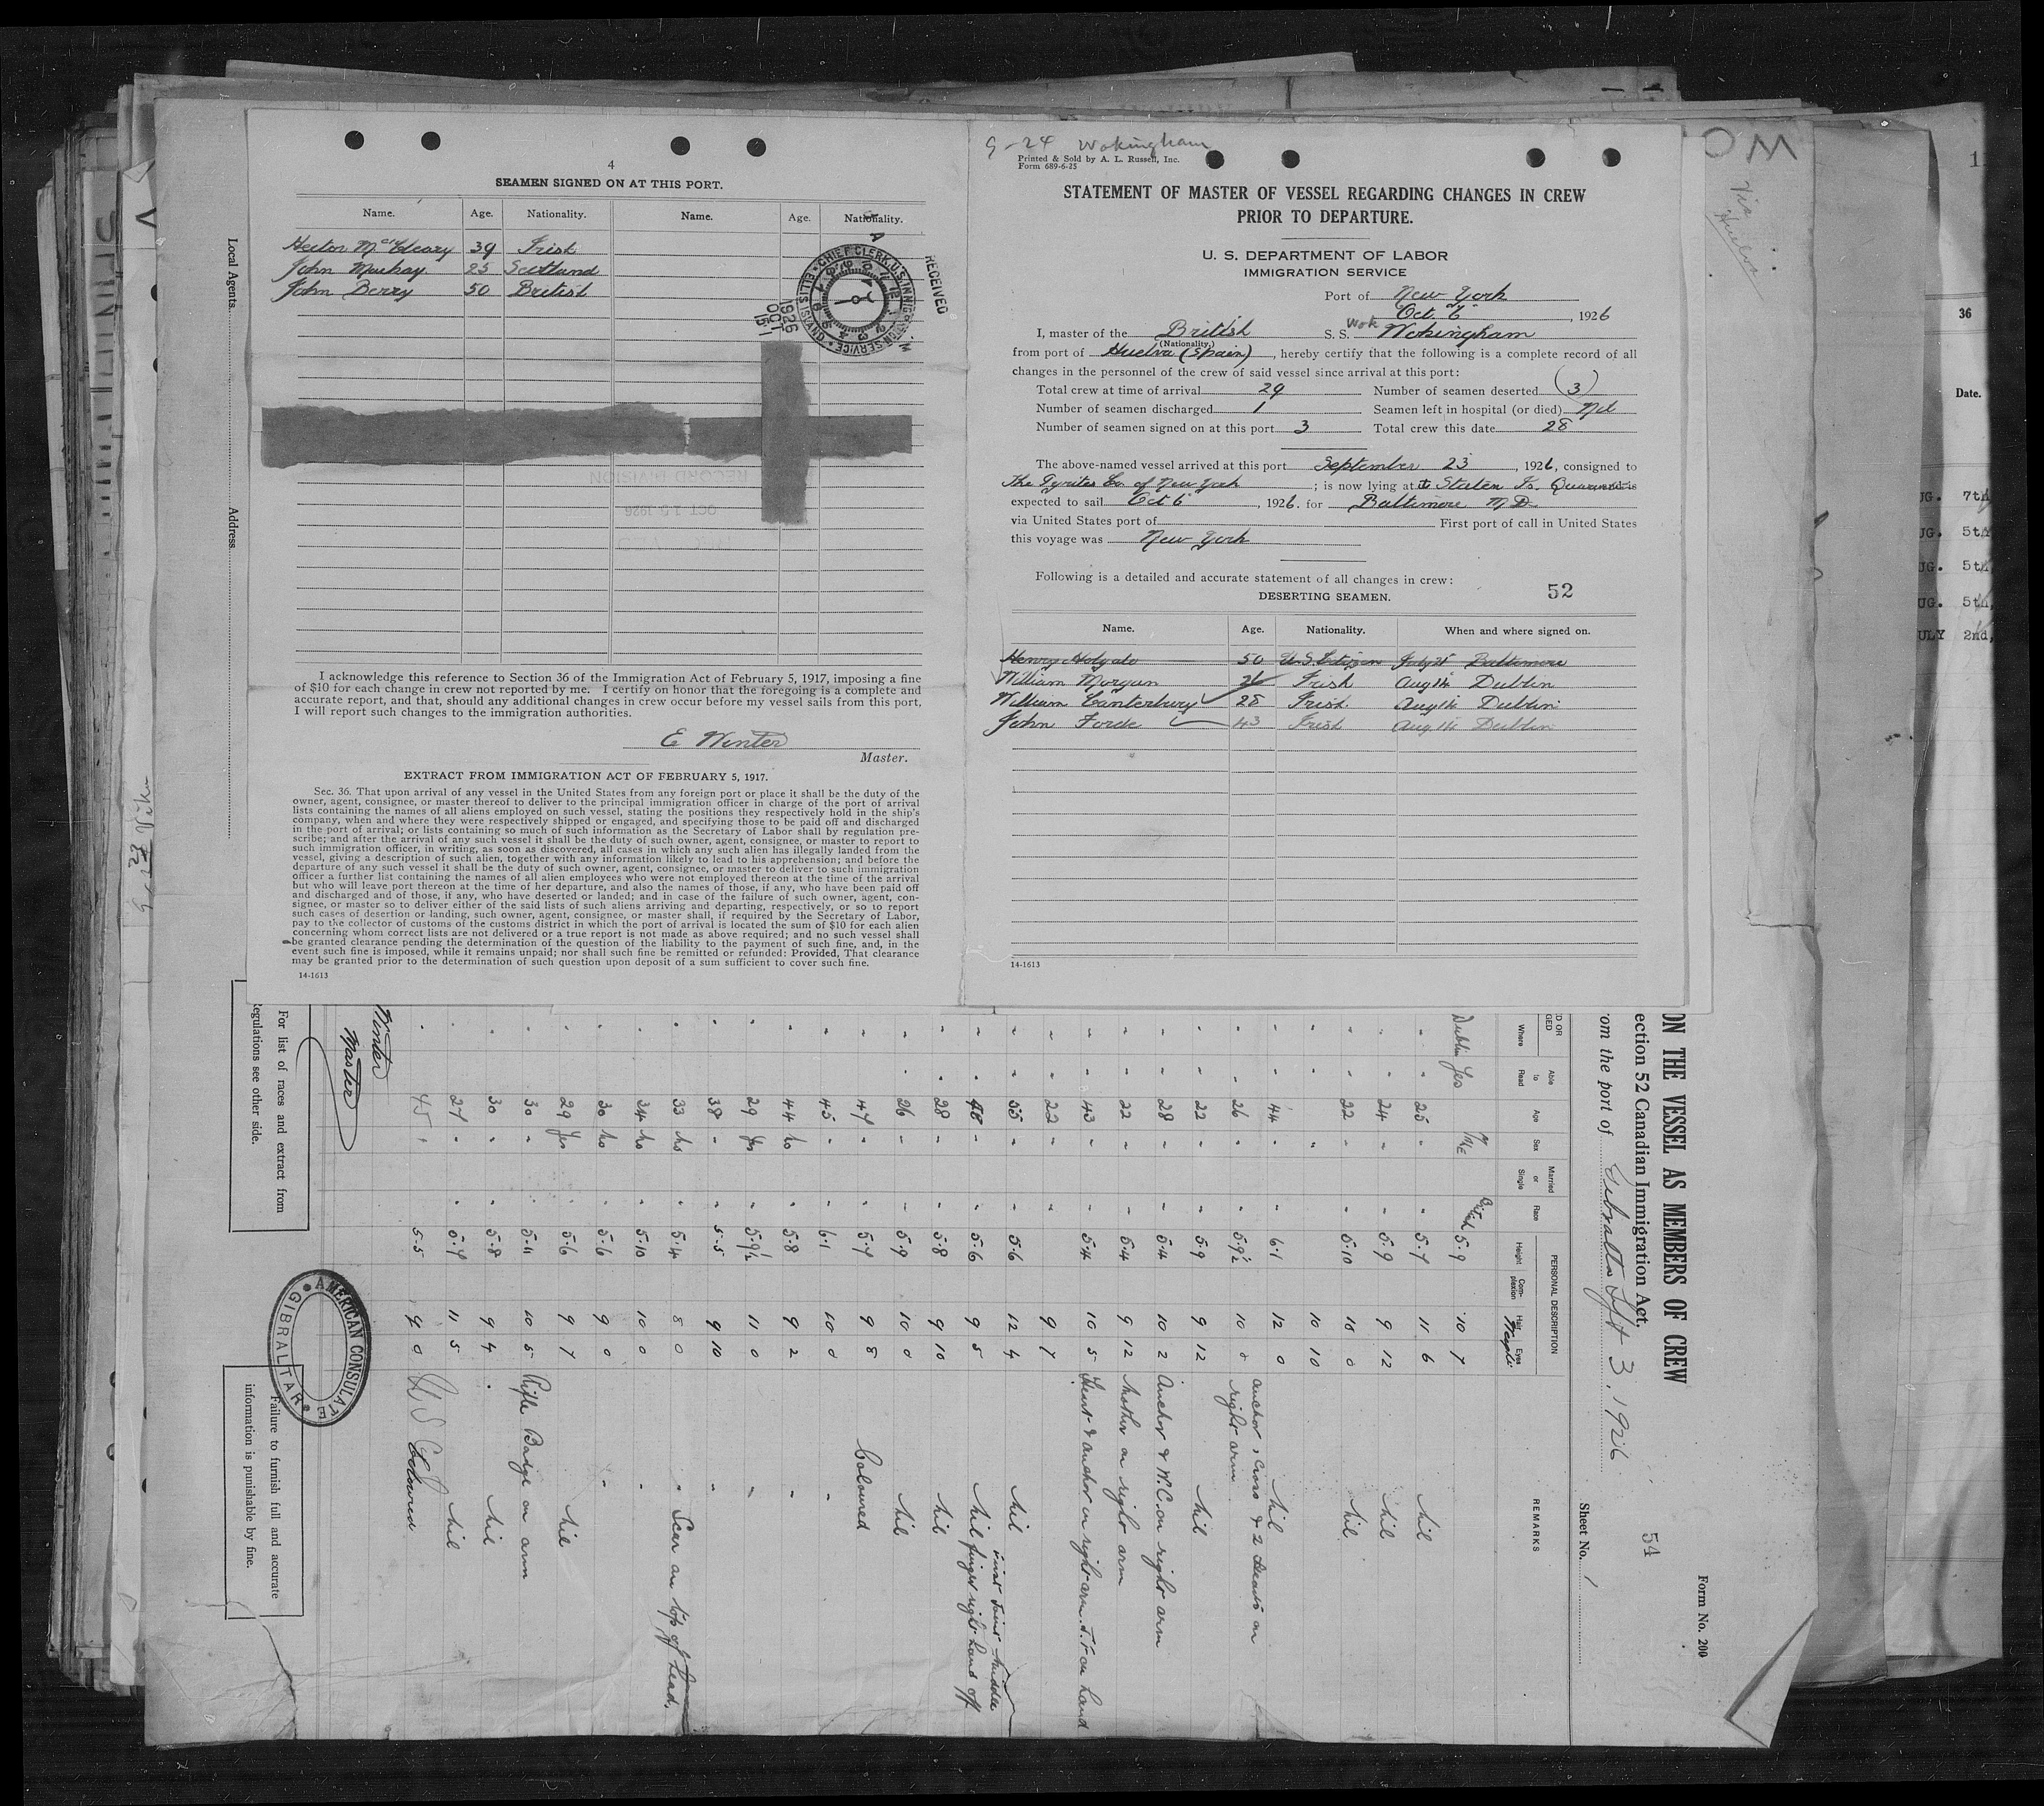 4
SEAMEN SIGNED ON AT THIS PORT.
Name. Age. Nationality. Name. Age. Nationality.
Hector McCleary 39 Irish
John Mackay 25 Scotland
John Berry 50 British
CHIEF CLERK, U.S. IMMIGRATION SERVICE ELLIS ISLAND
RECEIVED
1926 OCT 15
RECORD DIVISION
OCT 1926
I acknowledge this reference to Section 36 of the Immigration Act of February 5, 1917, imposing a fine
of $10 for each change in crew not reported by me. I certify on honor that the foregoing is a complete and
accurate report, and that, should any additional changes in crew occur before my vessel sails from this port,
I will report such changes to the immigration authorities.
E Winter
Master.
EXTRACT FROM IMMIGRATION ACT OF FEBRUARY 5, 1917.
Sec. 36. That upon arrival of any vessel in the United States from any foreign port or place it shall be the duty of the
owner, agent, consignee, or master thereof to deliver to the principal immigration officer in charge of the port of arrival
lists containing the names of all aliens employed on such vessel, stating the positions they respectively hold in the ship's
company, when and where they were respectively shipped or engaged, and specifying those to be paid off and discharged
in the port of arrival; or lists containing so much of such information as the Secretary of Labor shall by regulation pre-
scribe; and after the arrival of any such vessel it shall be the duty of such owner, agent, consignee, or master to report to
such immigration officer, in writing, as soon as discovered, all cases in which any such alien has illegally landed from the
vessel, giving a description of such alien, together with any information likely to lead to his apprehension; and before the
departure of any such vessel it shall be the duty of such owner, agent, consignee, or master to deliver to such immigration
officer a further list containing the names of all alien employees who were not employed thereon at the time of the arrival
but who will leave port thereon at the time of her departure, and also the names of those, if any, who have been paid off
and discharged and of those, if any, who have deserted or landed; and in case of the failure of such owner, agent, con-
signee, or master so to deliver either of the said lists of such aliens arriving and departing, respectively, or so to report
such cases of desertion or landing, such owner, agent, consignee, or master shall, if required by the Secretary of Labor,
pay to the collector of customs of the customs district in which the port of arrival is located the sum of $10 for each alien
concerning whom correct lists are not delivered or a true report is not made as above required; and no such vessel shall
be granted clearance pending the determination of the question of the liability to the payment of such fine, and, in the
event such fine is imposed, while it remains unpaid; nor shall such fine be remitted or refunded: Provided, That clearance
may be granted prior to the determination of such question upon deposit of a sum sufficient to cover such fine.
14-1613
9-24 Wokingham
Printed & Sold by A. L. Russell, Inc.
Form 689-6-25
STATEMENT OF MASTER OF VESSEL REGARDING CHANGES IN CREW
PRIOR TO DEPARTURE.
U. S. DEPARTMENT OF LABOR
IMMIGRATION SERVICE
Port of New York
Oct. 6, 1926
I, master of the British S. S. Wok Wokingham
(Nationality.)
from port of Huelva (Spain), hereby certify that the following is a complete record of all
changes in the personnel of the crew of said vessel since arrival at this port:
Total crew at time of arrival 29 Number of seamen deserted (3)
Number of seamen discharged 1 Seamen left in hospital (or died) Nil
Number of seamen signed on at this port 3 Total crew this date 28
The above-named vessel arrived at this port September 23, 1926, consigned to
The Pyrites Co. of New York; is now lying at Staten Is. Quarantine
expected to sail Oct 6, 1926. for Baltimore M D.
via United States port of First port of call in United States
this voyage was New York
Following is a detailed and accurate statement of all changes in crew:
DESERTING SEAMEN.
52
Name. Age. Nationality. When and where signed on.
Henry Holgate 50 U.S. Citizen July 21 Baltimore
William Morgan 26 Irish Aug 14 Dublin
William Canterbury 28 Irish Aug 14 Dublin
John Forde 43 Irish Aug 14 Dublin
14-1613
Local Agents
Address
WO
Via Huelva
36
Date.
UG. 7th
UG. 5th
UG. 5th
UG. 5th,
ULY 2nd,
Form No. 200
54
Sheet No. 1
ON THE VESSEL AS MEMBERS OF CREW
ection 52 Canadian Immigration Act,
om the port of Gibraltar Sept 3, 1926
D OR GED
Where
Able to Read
Age
Sex
Married or Single
Race
PERSONAL DESCRIPTION
Height
Complexion
Hair
Eyes
Weight
REMARKS
Dublin Yes Male British 5.9 10 7
25 5.7 11 6 Nil
24 5.9 9 12 Nil
22 5.10 10 0 Nil
10 10
44 6.1 12 0 Nil
26 5.9½ 10 0 anchor, cross & 2 hearts on right arm
22 5.9 9 12 Nil
28 5.4 10 2 Anchor & W.C. on right arm
22 5.4 9 12 Mother on right arm
43 5.4 10 5 Heart & anchor on right arm. J.F. on hand
22 9 7
55 5.6 12 4 Nil
48 5.6 9 5 Nil first joint middle finger right hand off
28 5.8 9 10 Nil
26 5.9 10 0 Nil
47 5.7 9 8 Coloured
45 6.1 10 0
44 no 5.8 9 2
29 yes 5.9½ 11 0
38 5.5 9 10
33 no 5.4 8 0 Scar on top of head.
34 no 5.10 10 0
30 no 5.6 9 0
29 yes 5.6 9 7 Nil
30 5.11 10 5 Rifle Badge on arm
30 5.8 9 4 Nil
27 5.7 11 5 Nil
45 5.5 9 0 U S C Coloured
Winter
Master
AMERICAN CONSULATE GIBRALTAR
For list of races and extract from
egulations see other side.
Failure to furnish full and accurate
information is punishable by fine.